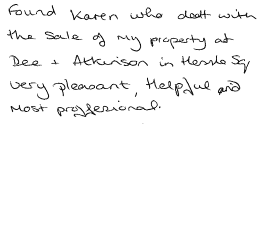 Found Karen who dealt with
the Sale of my property at
Dee + Atkinson in Hessle Sq
very pleasant, Helpful and
most proffesional.